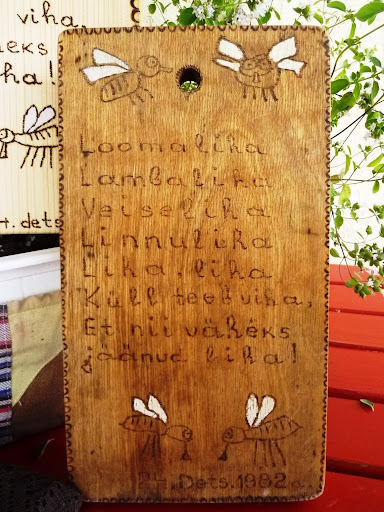 viha,
väheks
liha!
24. dets.
Loomaliha
Lambaliha
Veiseliha
Linnuliha
Liha, liha
Küll teeb viha,
Et nii väheks
jäänud liha!
24. Dets. 1982 a.